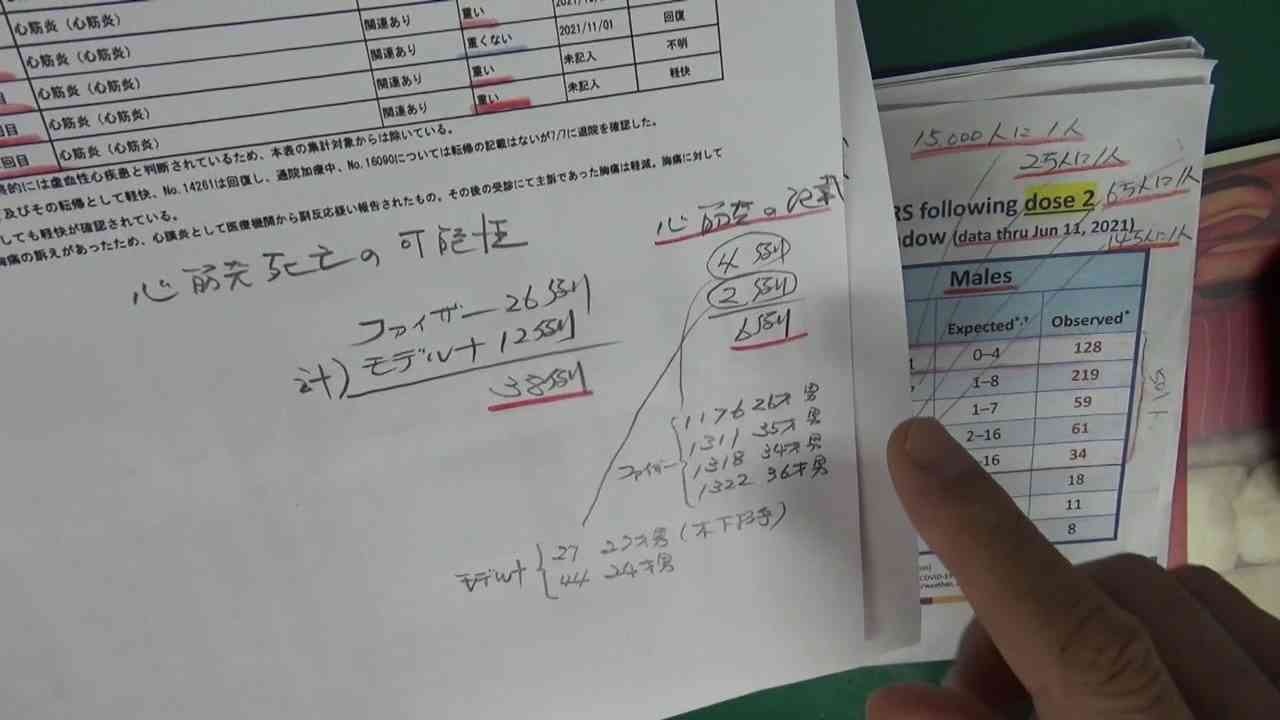 心筋炎（心筋炎） 関連あり 重い
心筋炎（心筋炎） 関連あり 重くない 2021/11/01 回復
心筋炎（心筋炎） 関連あり 重い 未記入 不明
回目 心筋炎（心筋炎） 関連あり 重い 未記入 軽快
回目 心筋炎（心筋炎）
的には虚血性心疾患と判断されているため、本表の集計対象からは除いている。
及びその転帰として軽快、No.14261は回復し、通院加療中、No.16090については転帰の記載はないが7/7に退院を確認した。
しても軽快が確認されている。
胸痛の訴えがあったため、心膜炎として医療機関から副反応疑い報告されたもの。その後の受診にて主訴であった胸痛は軽減。胸痛に対して
心筋炎死亡の可能性
ファイザー 26例
計) モデルナ 12例
38例
心筋炎の記載
4例
2例
6例
ファイザー
1176 26才 男
1311 35才 男
1318 34才 男
1322 36才 男
モデルナ
27 27才男(木下
44 24才男
15,000人に1人
25人に1人
65人に1人
145人に1人
RS following dose 2
dow (data thru Jun 11, 2021)
Males
Expected*,† Observed*
0–4 128
1–8 219
1–7 59
2–16 61
16 34
18
11
8
COVID-19